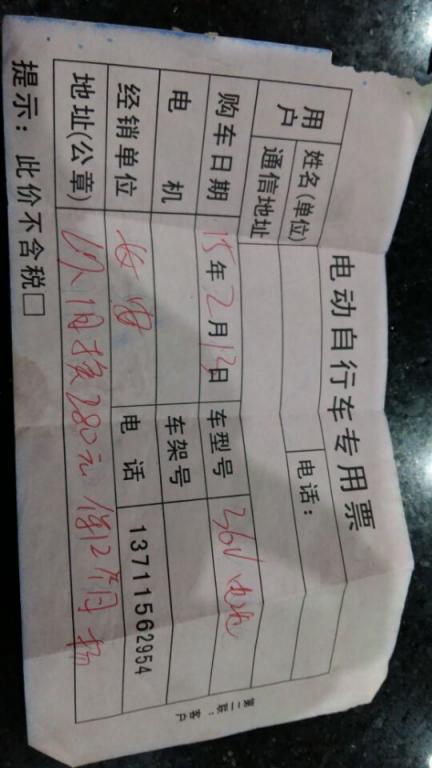 电动自行车专用票
用户 姓名(单位) 电话：
通信地址
购车日期 15年2月13日 车型号 36V电池
电机 车架号
经销单位 电话 13711562954
地址(公章) 换280元 保12个月
提示：此价不含税□
第二联：客户